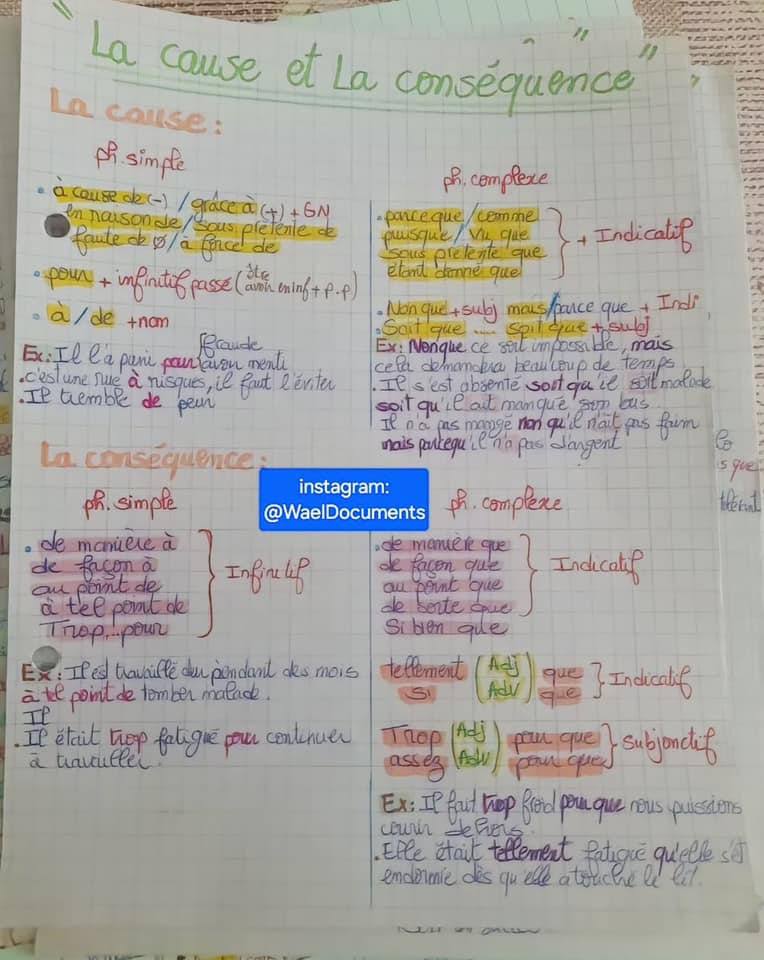 "La cause et La conséquence"
La cause:
ph.simple
• à cause de (-) / grâce à (+) + GN
en raison de / sous prétexte de
faute de ∅ / à force de
• pour + infinitif passé (être avoir en inf + p.p)
• à / de + nom
Ex: Il l'a puni pour fraude
avoir menti
• c'est une rue à risques, il faut l'éviter
• Il tremble de peur
ph.complexe
• parce que / comme
puisque / Vu que
sous prétexte que
étant donné que
+ Indicatif
• Non que + subj mais/parce que + Indi
• Soit que .... soit que + subj
Ex: Nonque ce soit impossible, mais
cela demandera beaucoup de temps
• Il s'est absenté soit qu'il soit malade
soit qu'il ait manqué son bus
Il n'a pas mangé non qu'il n'ait pas faim
mais parcequ'il n'a pas d'argent
La conséquence:
ph.simple
• de manière à
de façon à
au point de
à tel point de
Trop...pour
Infinitif
Ex: Il est travaillé dur pendant des mois
à tel point de tomber malade.
Il
• Il était trop fatigué pour continuer
à travailler.
instagram:
@WaelDocuments
ph.complexe
• de manière que
de façon que
au point que
de sorte que
Si bien que
Indicatif
tellement (Adj) que
Si (Adv) que
Indicatif
Trop (Adj) pour que
assez (Adv) pour que
Subjonctif
Ex: Il fait trop froid pour que nous puissions
courir dehors.
• Elle était tellement fatigué qu'elle s'est
endormie dès qu'elle a touché le lit.